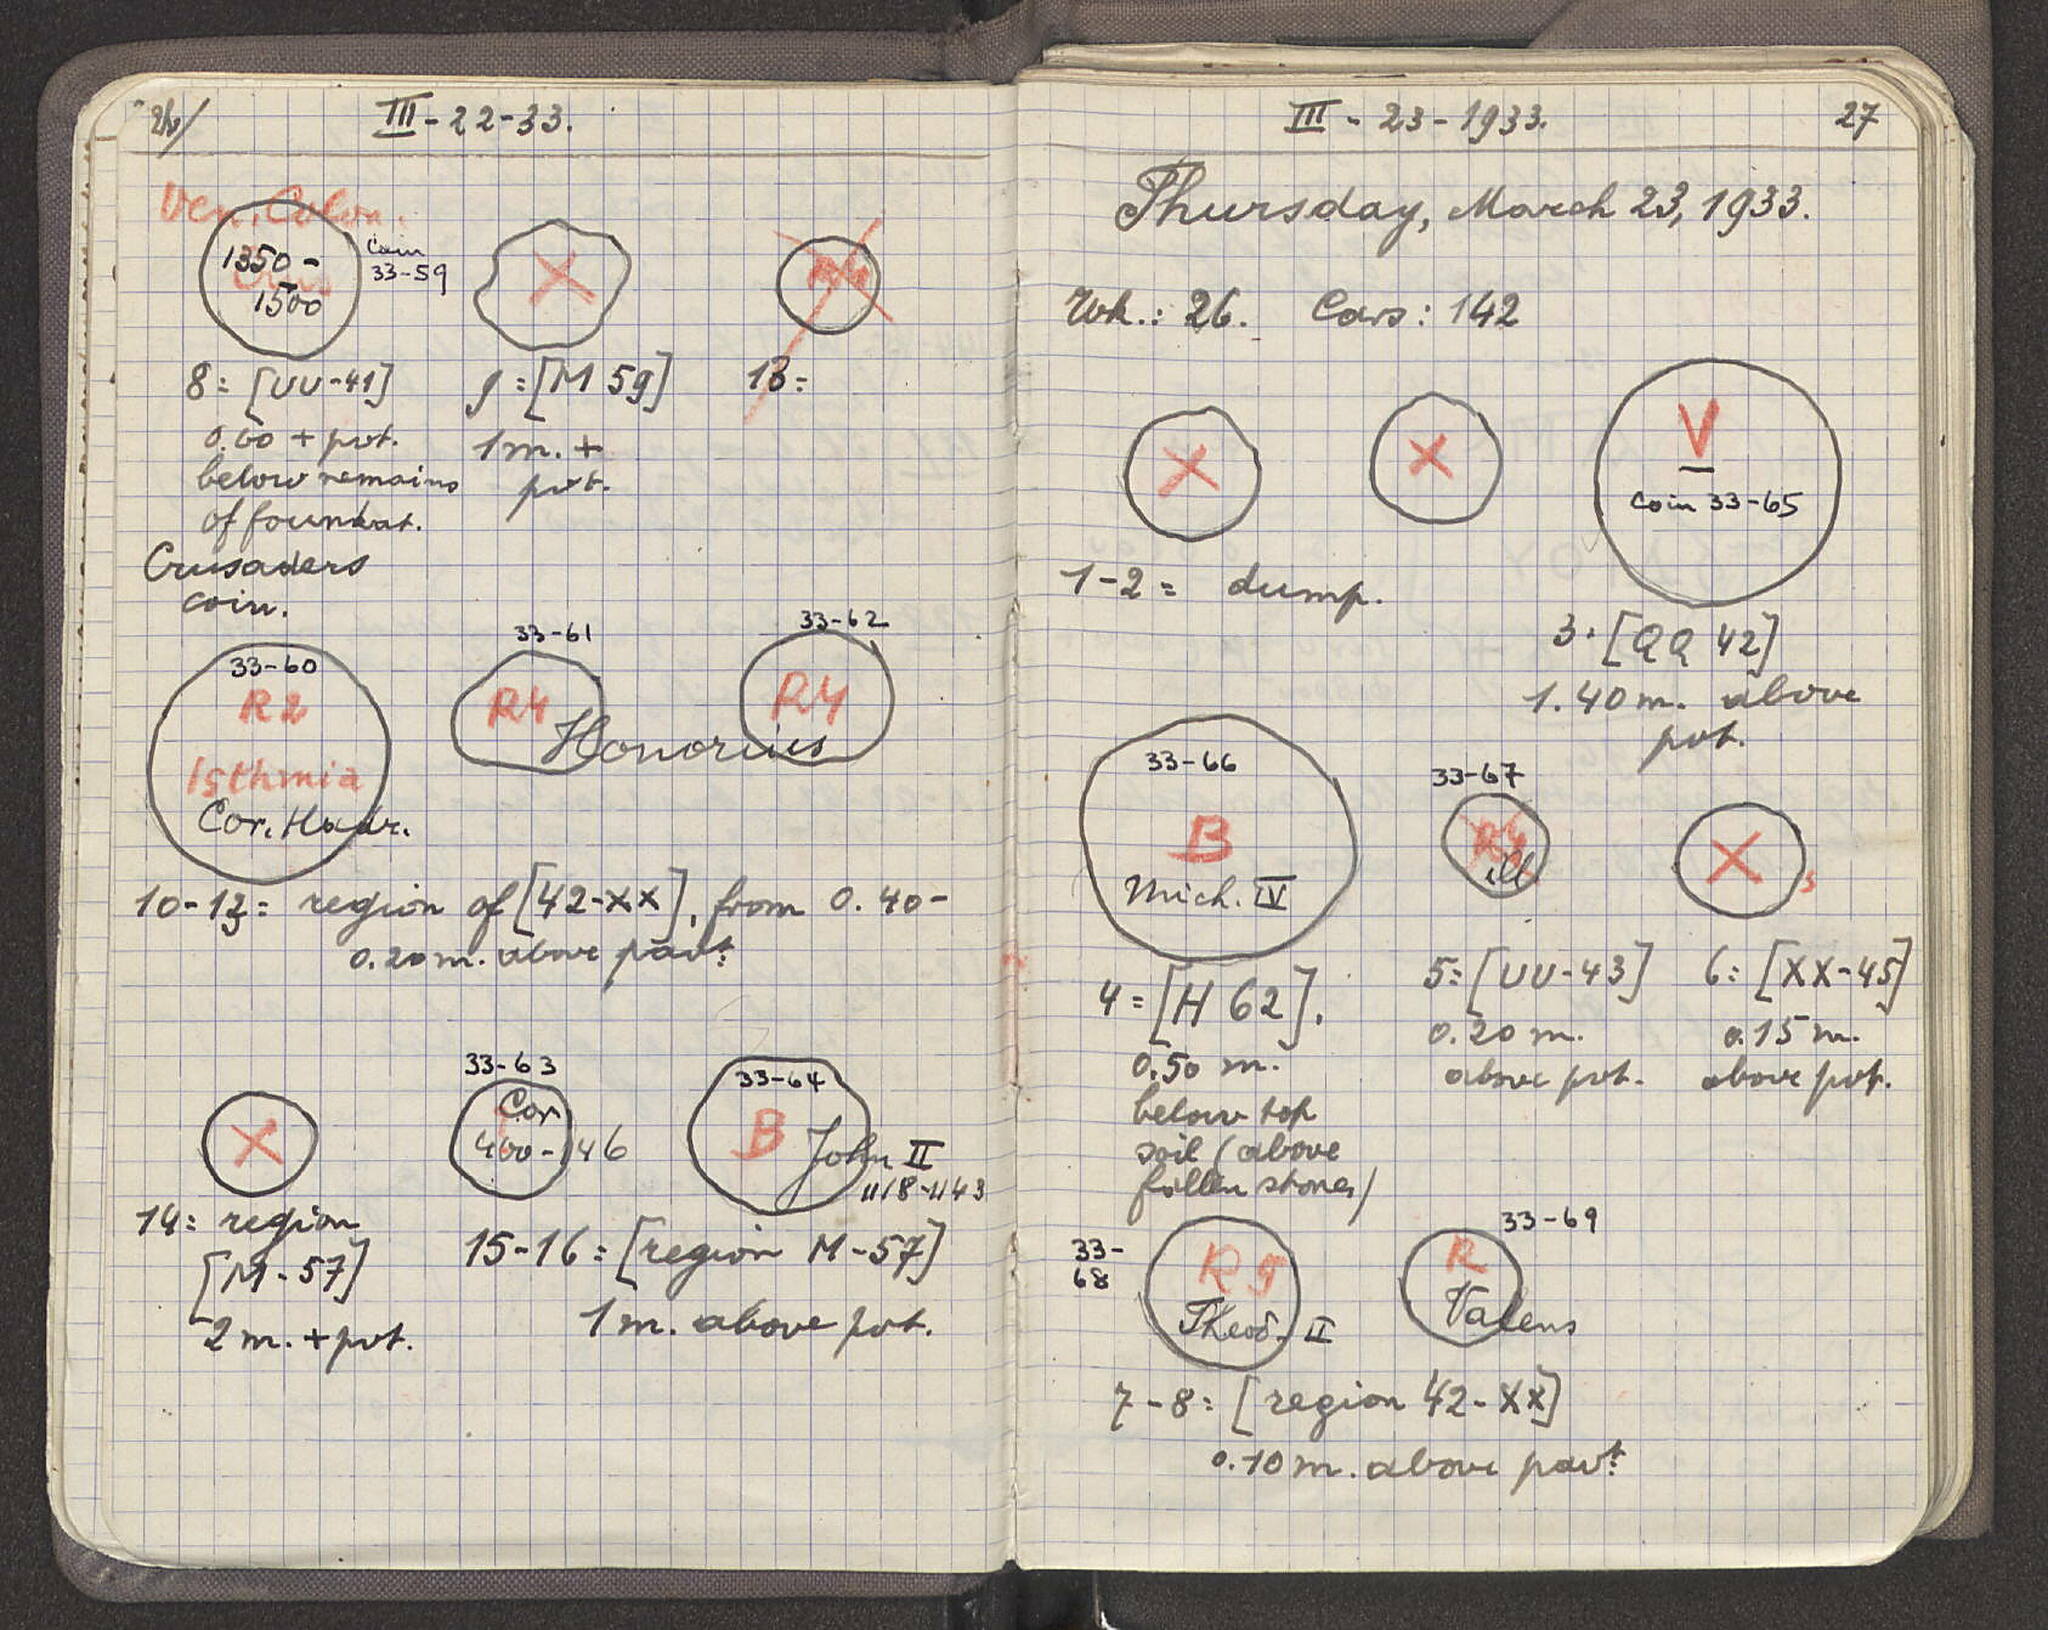 III-22-33.
Ven. Colon.
1350-
1500
Coin
33-59
X
R4
8= [UU-41]
0.60 + pvt.
below remains
of foundat.
Crusaders
coin.
9=[M 59]
1m. +
pvt.
13=
33-60
R2
Isthmia
Cor. Hadr.
33-61
R4
33-62
R4
Honorius
10-13= region of [42-XX], from 0.40-
0.20m. above pavt.
X
33-63
Cor
400-146
33-64
B
John II
1118-1143
14= region
[M-57]
2 m. + pvt.
15-16= [region M-57]
1m. above pvt.
III - 23-1933.
27
Thursday, March 23, 1933.
Wk.: 26. Cars: 142
X
X
V
Coin 33-65
1-2= dump.
3. [QQ 42]
1.40m. above
pvt.
33-66
B
Mich. IV
33-67
R4
ill
X
4= [H 62].
0.50 m.
below top
soil (above
fallen stones)
5= [UU-43]
0.20 m.
above pvt.
6= [XX-45]
0.15 m.
above pvt.
33-
68
R5
Theod. II
33-69
R
Valens
7-8= [region 42-XX]
0.10m. above pavt.